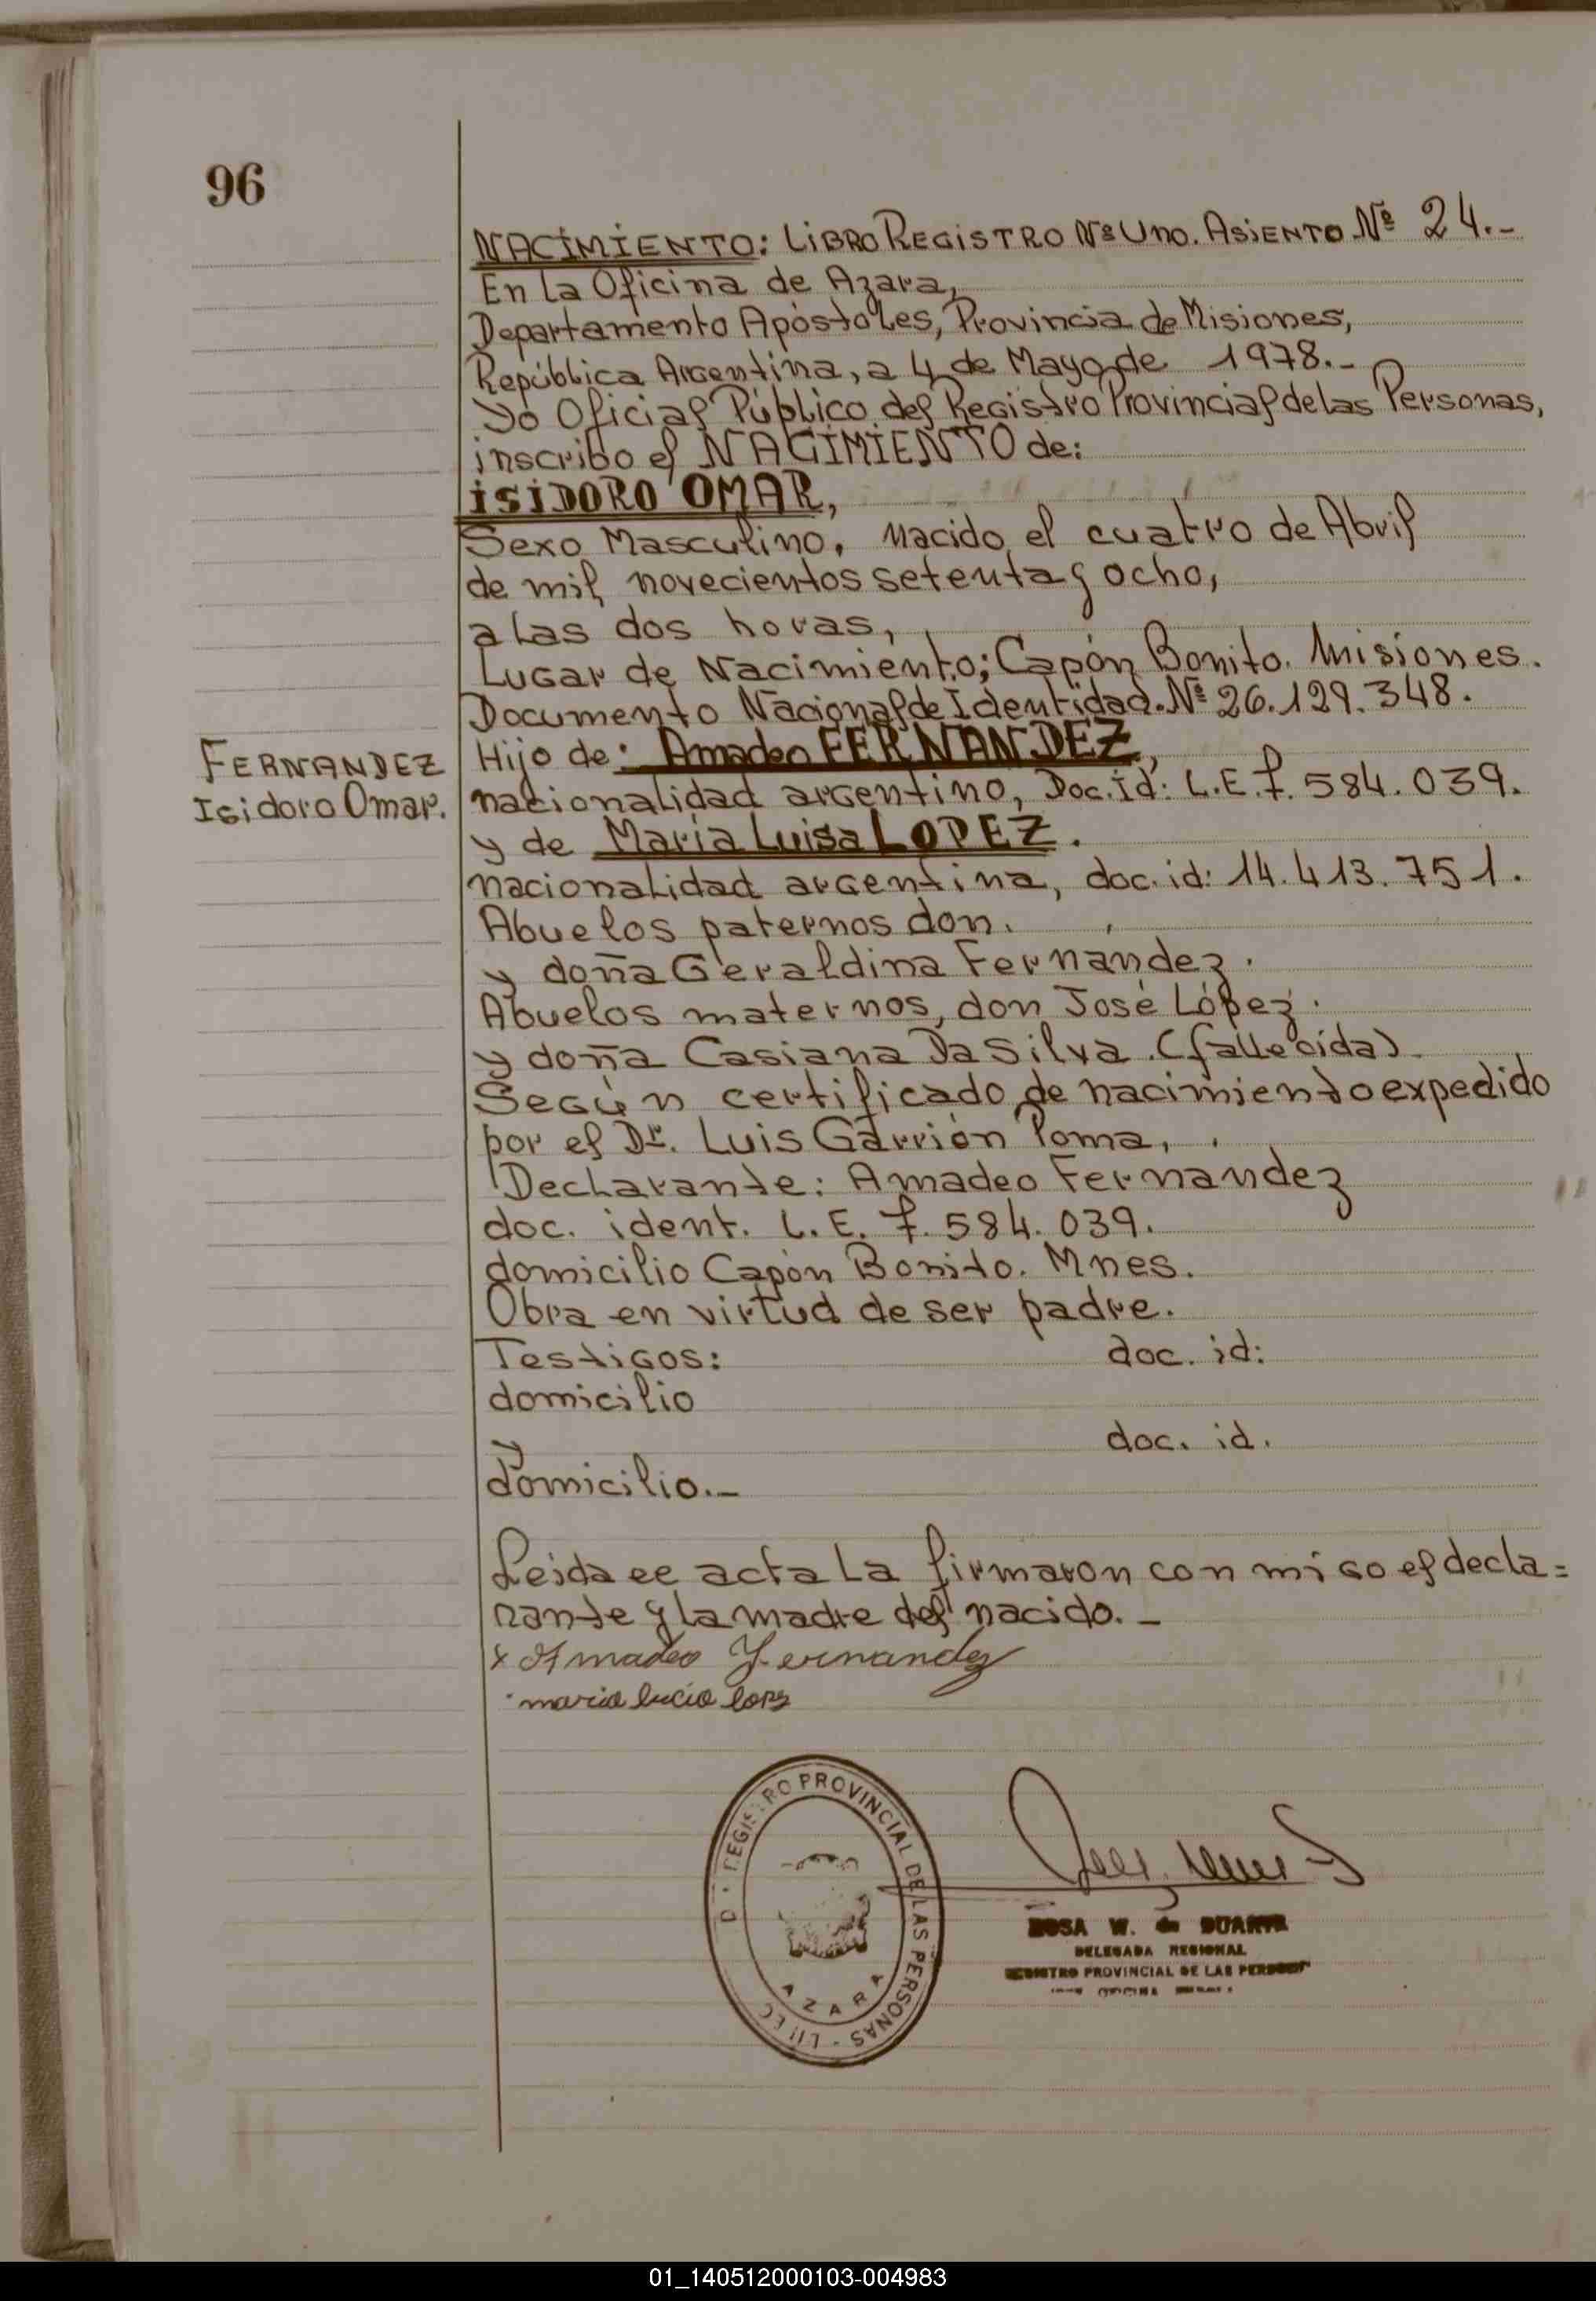 96
NACIMIENTO: LIBRO REGISTRO Nº UNO. ASIENTO Nº 24.-
En la Oficina de Azara,
Departamento Apóstoles, Provincia de Misiones,
República Argentina, a 4 de Mayo de 1978.-
Yo Oficial Público del Registro Provincial de las Personas,
inscribo el NACIMIENTO de:
ISIDORO OMAR,
Sexo Masculino, Nacido el cuatro de Abril
de mil novecientos setenta y ocho,
a las dos horas,
Lugar de Nacimiento; Capón Bonito. Misiones.
Documento Nacional de Identidad. Nº 26.129.348.
Hijo de: Amadeo FERNANDEZ,
FERNANDEZ
Isidoro Omar.
nacionalidad argentino, Doc. Id: L.E. 7.584.039.
y de María Luisa LOPEZ.
nacionalidad argentina, doc. id: 14.413.751.
Abuelos paternos don.
y doña Geraldina Fernández.
Abuelos maternos, don José López.
y doña Casiana Da Silva. (fallecida)
Según certificado de nacimiento expedido
por el Dr. Luis Garrión Poma,
Declarante: Amadeo Fernandez
doc. ident. L.E. 7.584.039.
domicilio Capón Bonito. Mnes.
Obra en virtud de ser padre.
Testigos: doc. id:
domicilio
y doc. id.
domicilio.-
Leida ee acta la firmaron con migo el decla=
rante y la madre del nacido.-
x Amadeo Fernandez
maria lucia lops
REGISTRO PROVINCIAL DE LAS PERSONAS
AZARA
ROSA W. de DUARTE
DELEGADA REGIONAL
REGISTRO PROVINCIAL DE LAS PERSONAS
OFICINA
01_140512000103-004983